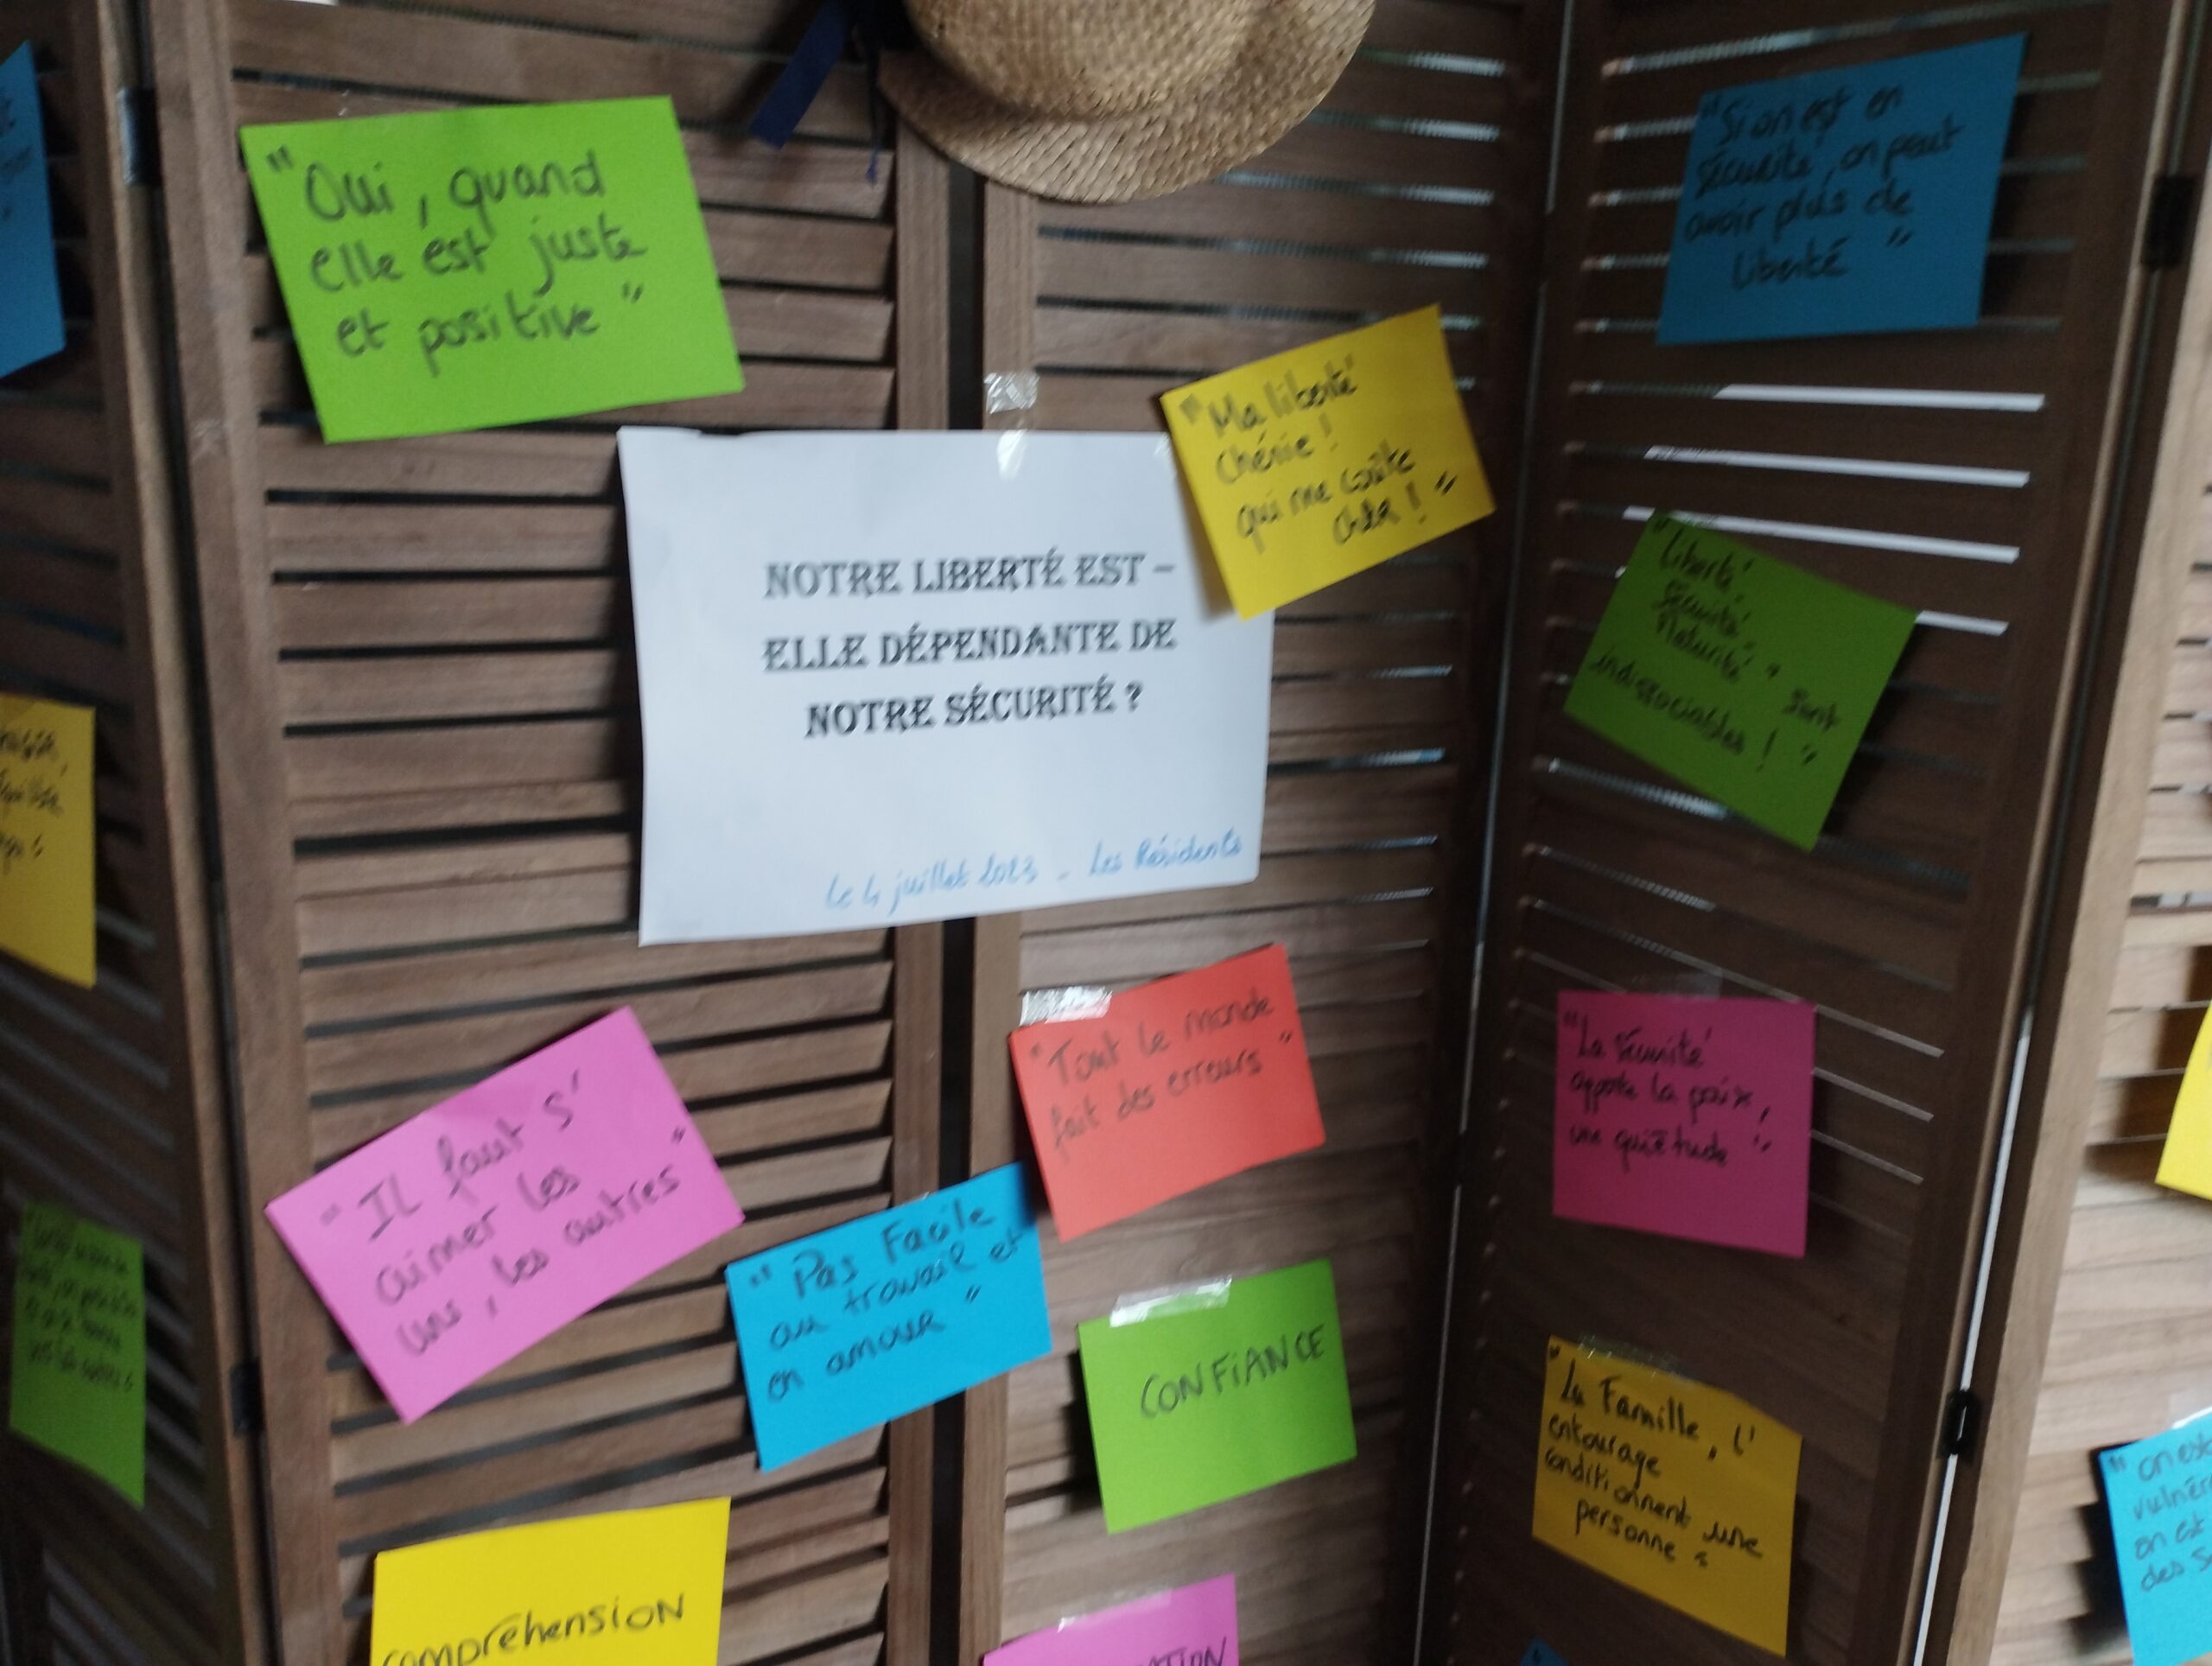 "Oui, quand
elle est juste
et positive"
"Si on est en
sécurité, on peut
avoir plus de
liberté"
"Ma liberté
chérie !
qui me coûte
cher !"
NOTRE LIBERTÉ EST -
ELLE DÉPENDANTE DE
NOTRE SÉCURITÉ ?
Le 4 juillet 2023 - Les Résidents
"Liberté
sécurité
Maturité" sont
indissociables ! "
"Tout le monde
fait des erreurs"
"La sécurité
apporte la paix,
une quiétude"
"IL faut s'
aimer les
uns, les autres"
"Pas Facile
au travail et
en amour"
CONFIANCE
"La Famille, l'
entourage
conditionnent une
personne"
compréhension
"on est
on est